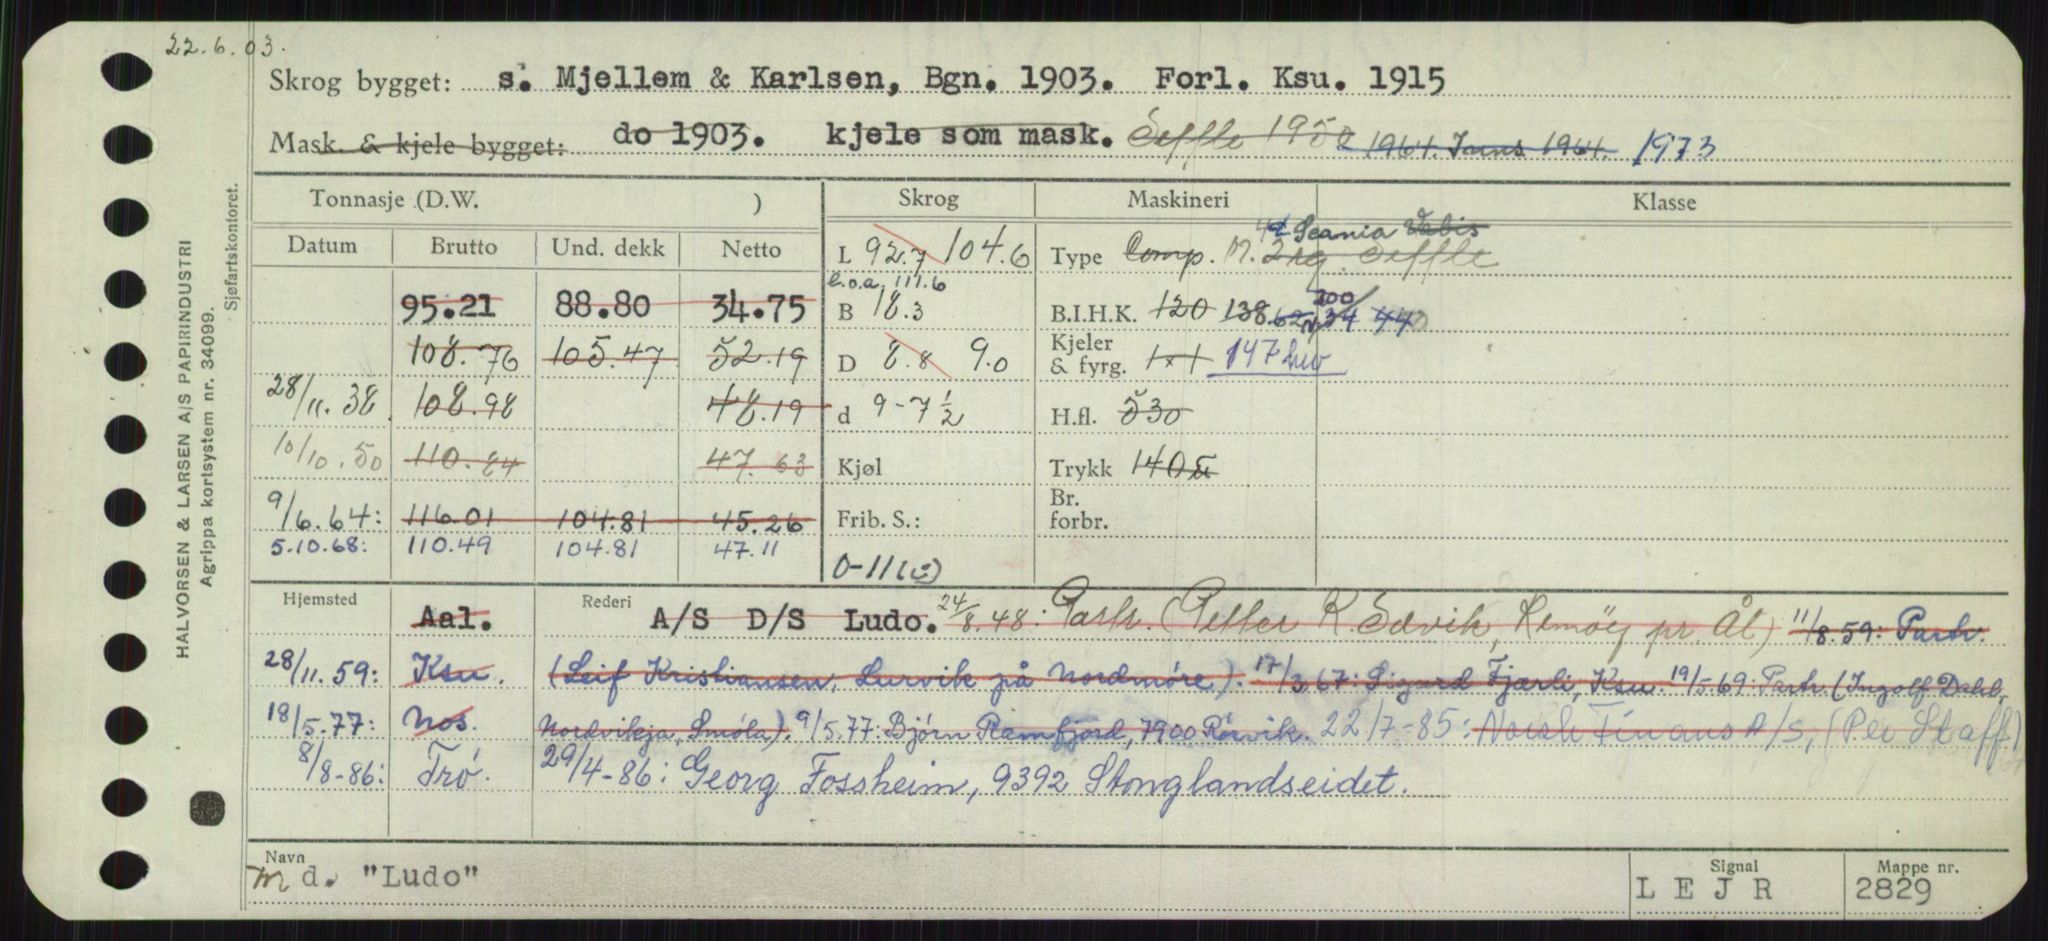 22.6.03.
Skrog bygget: s. Mjellem & Karlsen, Bgn. 1903. Forl. Ksu. 1915
Mask. & kjele bygget: do 1903. kjele som mask. Seffle 1950 1964. 1964. 1973
Tonnasje (D.W. ) Skrog Maskineri Klasse
Datum Brutto Und. dekk Netto
L 92.7 104.6
l.o.a. 111.6
Type Comp. M. 2 Seffle
Scania Vabis
95.21 88.80 34.75
B 18.3
B.I.H.K. 120 138 62 200 34 440
108.76 105.47 52.19
D 8.8 9.0
Kjeler & fyrg. 1x1 147
28/11.38 108.98 48.19
d 9-7½
H.fl. 530
10/10.50 110.84 47.63
Kjøl
Trykk 140
9/6.64: 116.01 104.81 45.26
Frib. S.:
Br. forbr.
5.10.68: 110.49 104.81 47.11
0-11
Hjemsted Aal. Rederi A/S D/S Ludo. 24/8.48: Partr. (Petter K. Sævik, Remøy pr. Ål) 11/8.59: Partr.
28/11.59: Ksu. (Leif Kristiansen, Lurvik på Nordmøre). 17/3.67: Sigurd Fjærli, Ksu. 19/5.69: Partr. (Ingolf Dahl,
18/5.77: Nos. Nordvikja, Smøla). 9/5.77: Bjørn Ramfjord, 7900 Rørvik. 22/7-85: Norsk Finans A/S, (Per Staff)
8/8-86: Trö. 29/4-86: Georg Fossheim, 9392 Stonglandseidet.
Navn Signal Mappe nr.
m d. "Ludo" L E J R 2829
HALVORSEN & LARSEN A/S PAPIRINDUSTRI
Agrippa kortsystem nr. 34099.
Sjøfartskontoret.